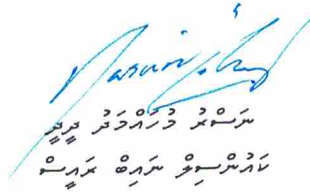 ނަސްރު މުޙައްމަދު ދީދީ
ކައުންސިލް ނައިބް ރައީސް